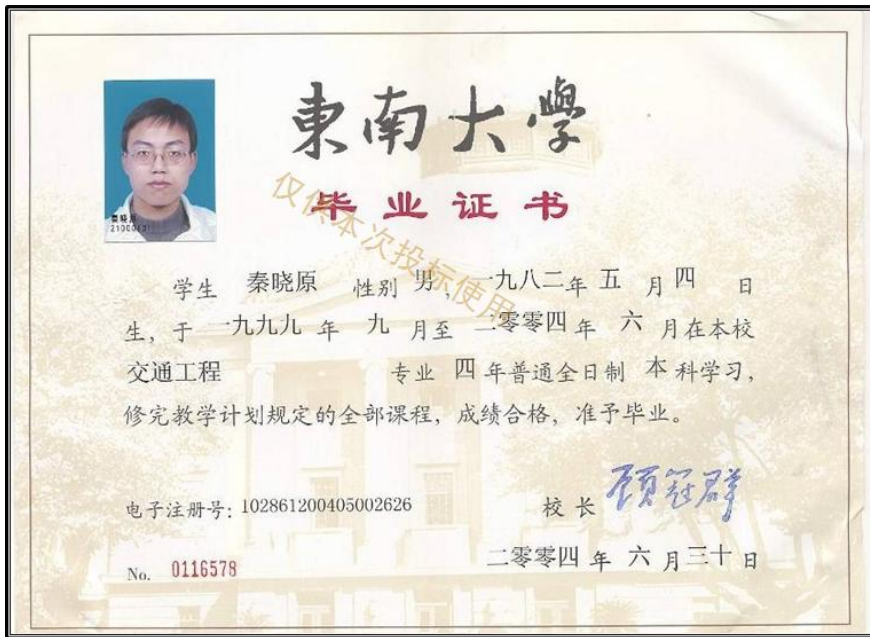 東南大學
毕业证书
仅供本次投标使用
秦晓原
学生 秦晓原 性别 男,一九八二年 五 月 四 日
生,于 一九九九 年 九 月至 二零零四 年 六 月在本校
交通工程 专业 四 年普通全日制 本 科学习,
修完教学计划规定的全部课程,成绩合格,准予毕业。
电子注册号:102861200405002626 校长 顾冠群
No. 0116578 二零零四 年 六 月三十日